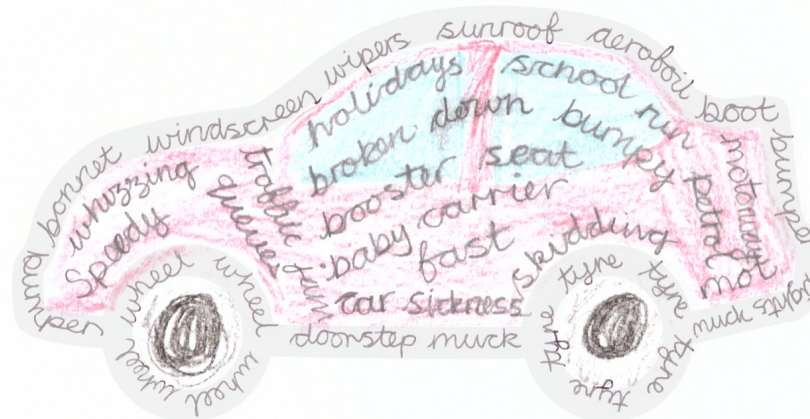 bumper bonnet windscreen wipers sunroof aerofoil boot bumper
holidays
school run
broken down
bumpy
booster seat
baby carrier
fast
car sickness
skidding
whizzing
speedy
traffic
queues
jam
patrol
motorway
mot
wheel wheel wheel wheel
doorstep muck
tyre tyre tyre tyre tyre
muck